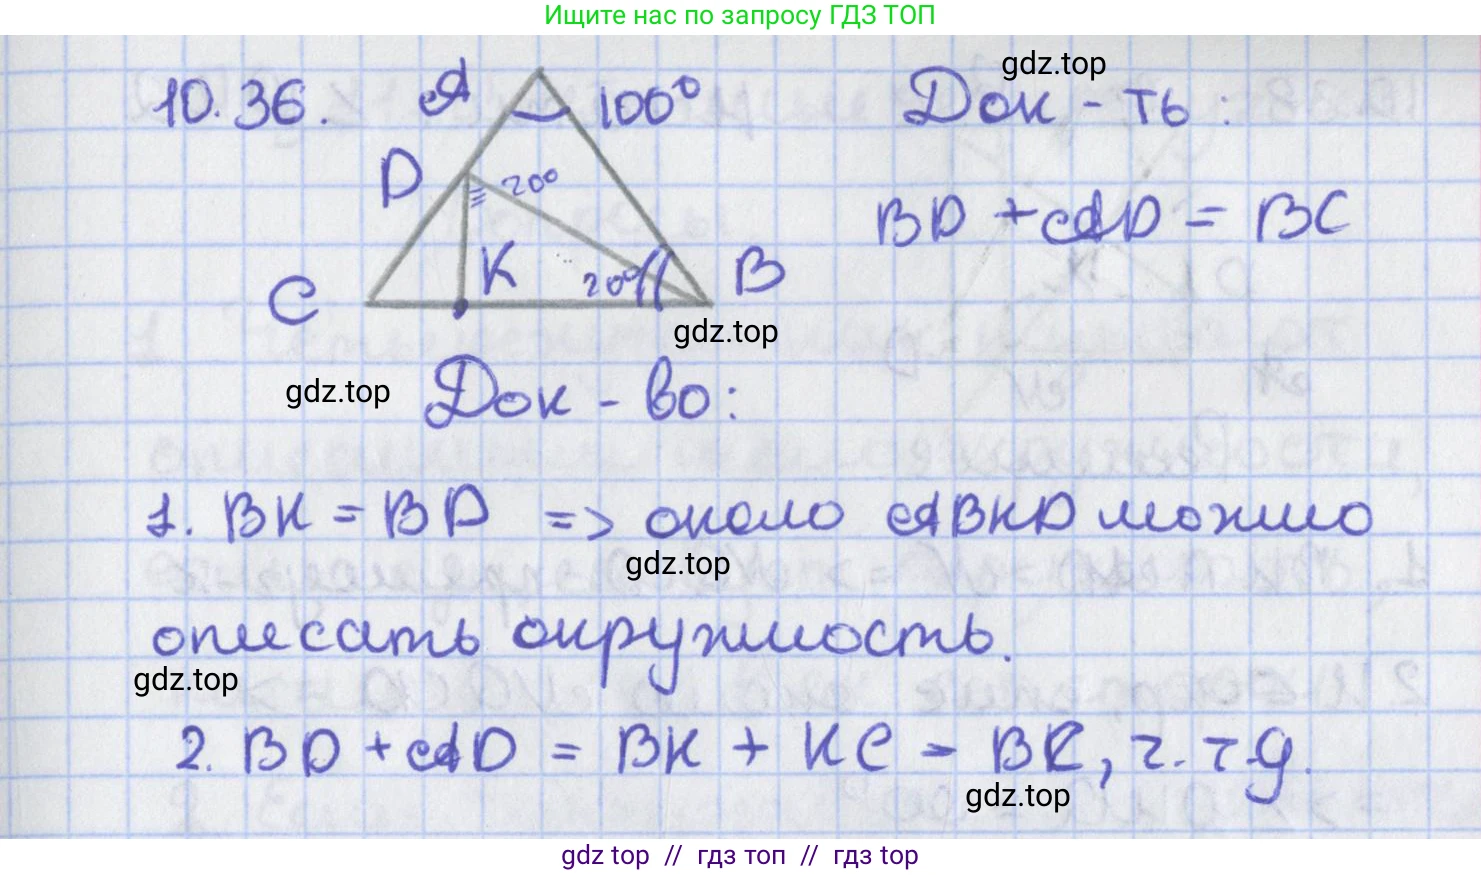 Ищите нас по запросу ГДЗ ТОП
gdz.top
10.36. A 100° Док-ть:
D 20°
BD + AD = BC
K 20° B
C
gdz.top
gdz.top
Док-во:
1. BK = BD => около ABKD можно
gdz.top
описать окружность.
gdz.top
2. BD + AD = BK + KC = BC, ч.т.д.
gdz.top
gdz top // гдз топ // гдз top